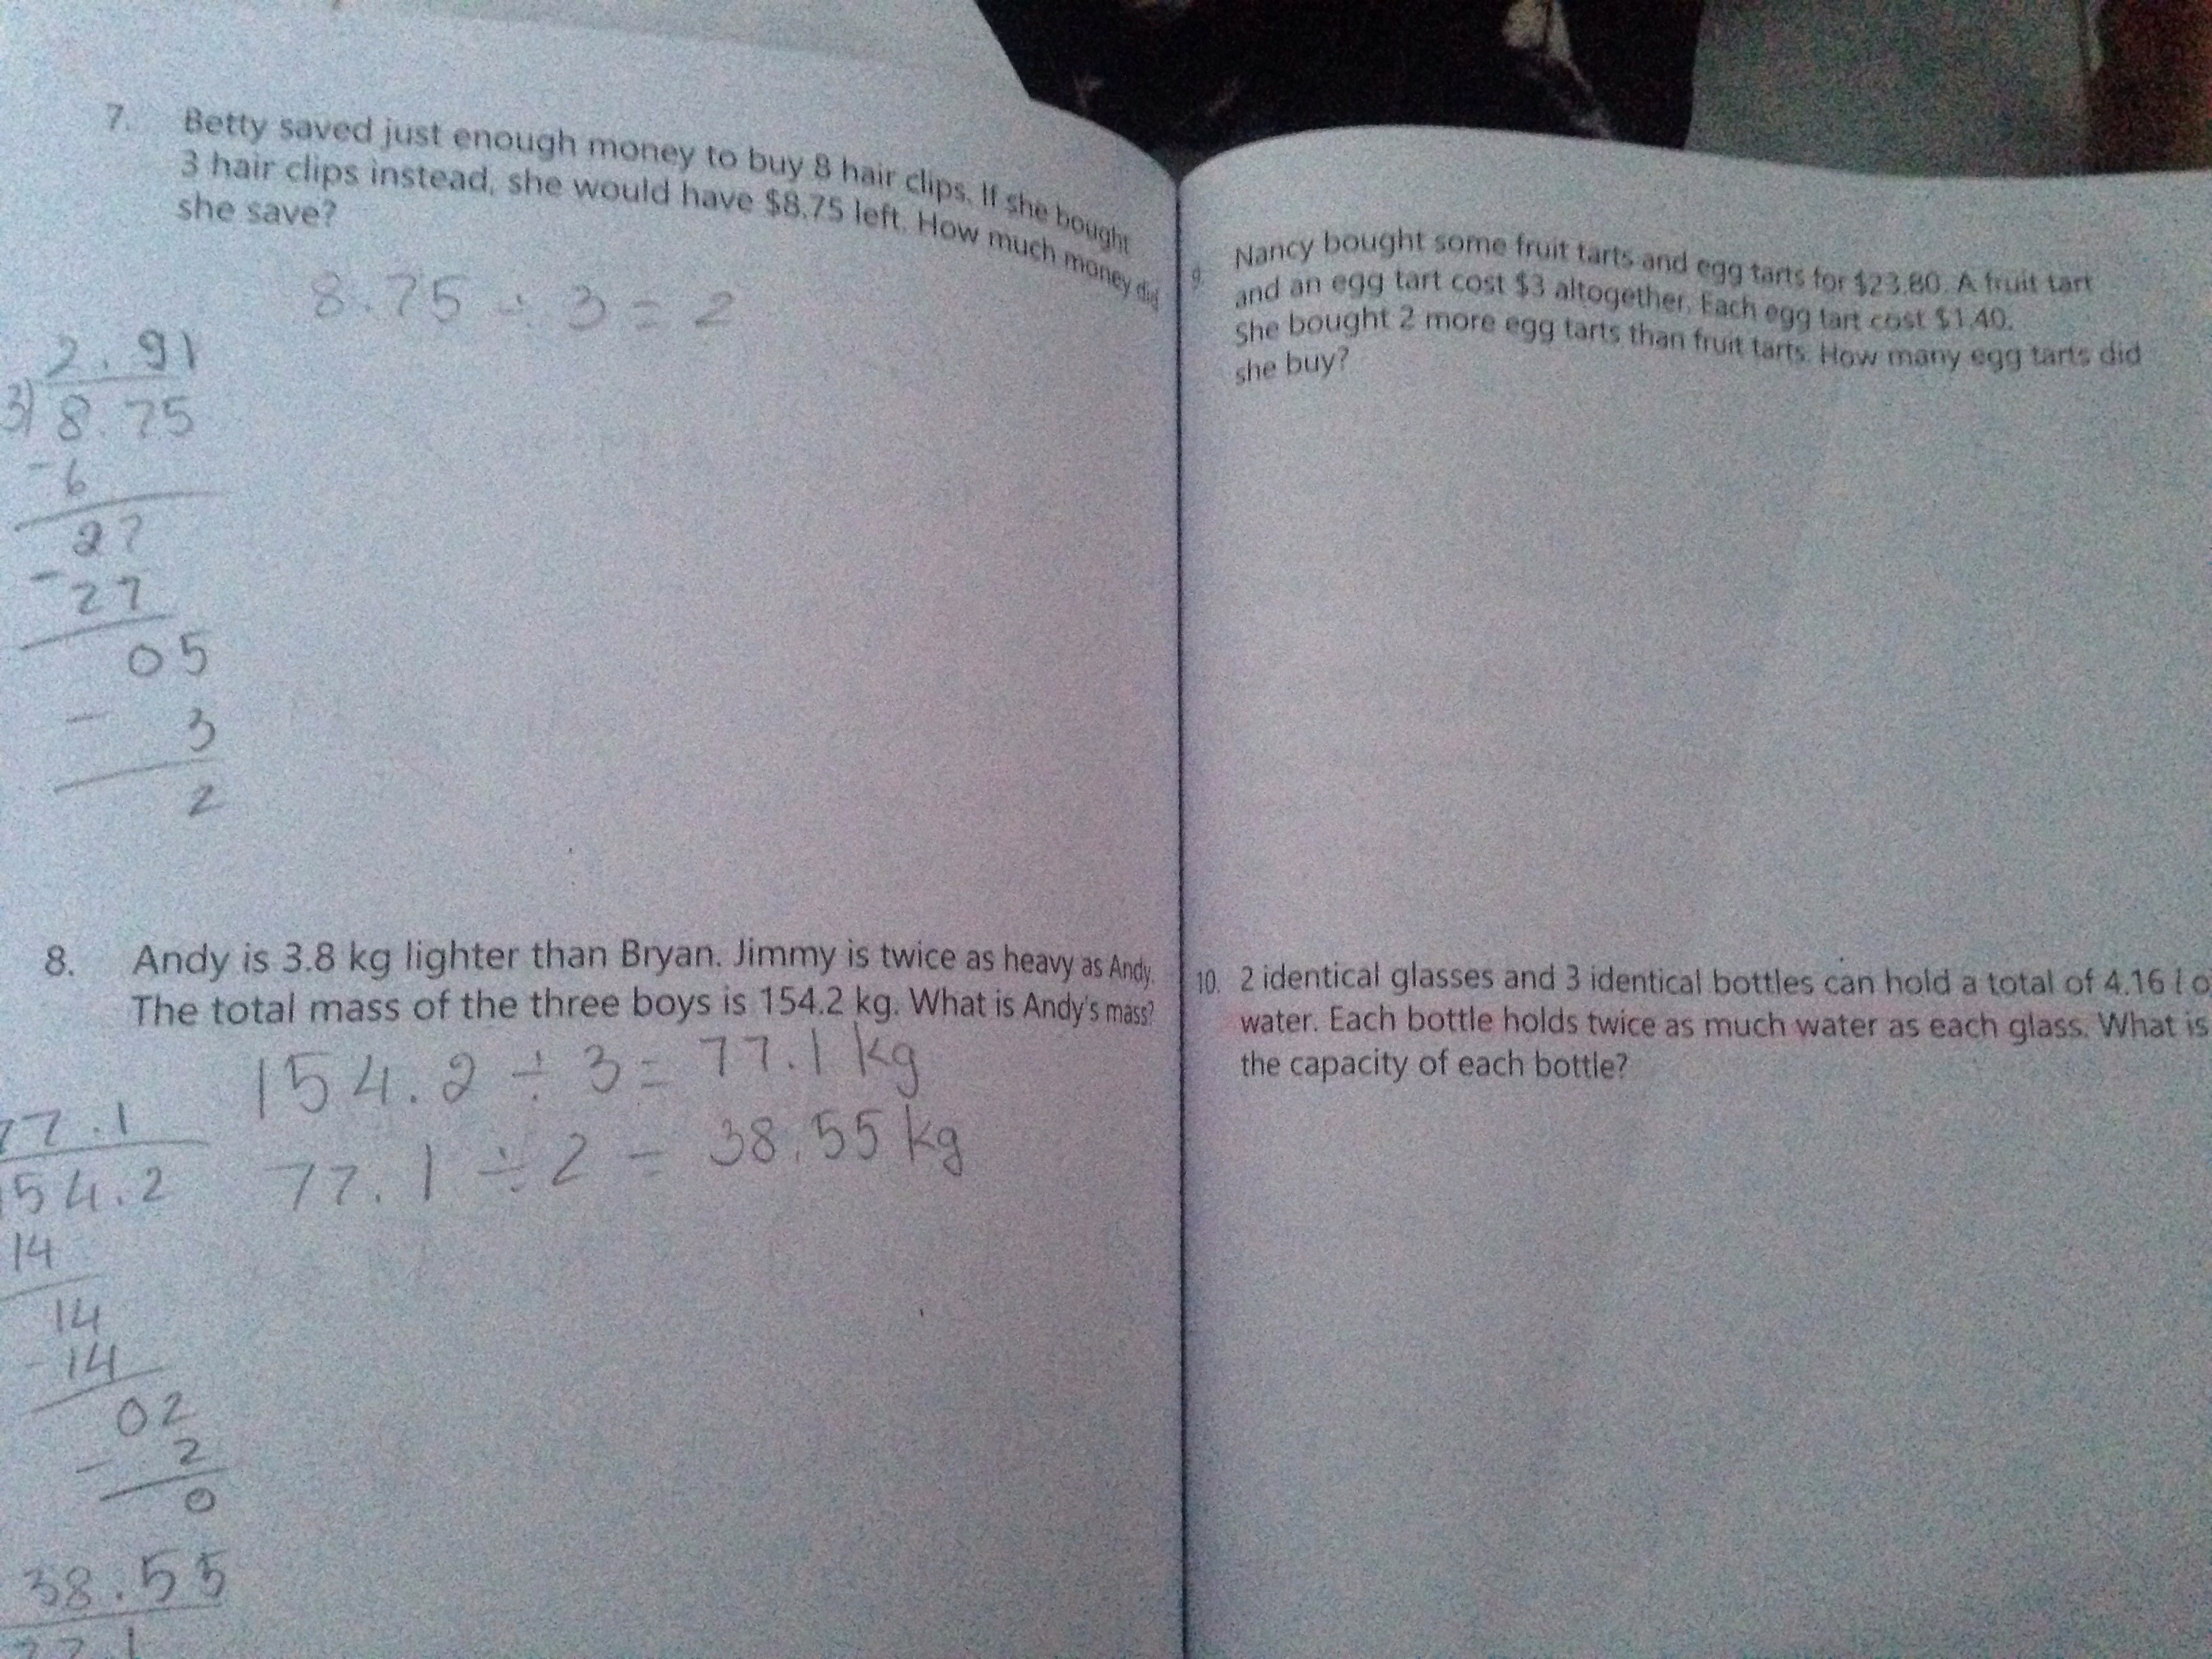 7. Betty saved just enough money to buy 8 hair clips. If she bought
3 hair clips instead, she would have $8.75 left. How much money did
she save?
8.75 ÷ 3 = 2
2.91
3) 8.75
- 6
27
- 27
05
- 3
2
8. Andy is 3.8 kg lighter than Bryan. Jimmy is twice as heavy as Andy.
The total mass of the three boys is 154.2 kg. What is Andy's mass?
154.2 ÷ 3 = 77.1 kg
77.1 ÷ 2 = 38.55 kg
77.1
154.2
14
14
- 14
02
- 2
0
38.55
77.1
9. Nancy bought some fruit tarts and egg tarts for $23.80. A fruit tart
and an egg tart cost $3 altogether. Each egg tart cost $1.40.
She bought 2 more egg tarts than fruit tarts. How many egg tarts did
she buy?
10. 2 identical glasses and 3 identical bottles can hold a total of 4.16 l o
water. Each bottle holds twice as much water as each glass. What is
the capacity of each bottle?